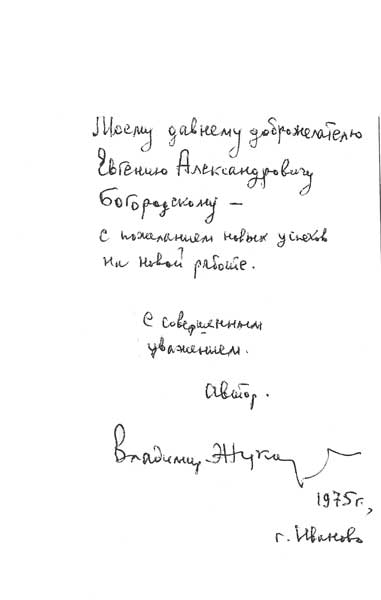 Моему давнему доброжелателю
Евгению Александровичу
Богородскому —
с пожеланием новых успехов
на новой работе.
С совершенным
уважением.
Автор.
Владимир Жук
1975 г.,
г. Иваново